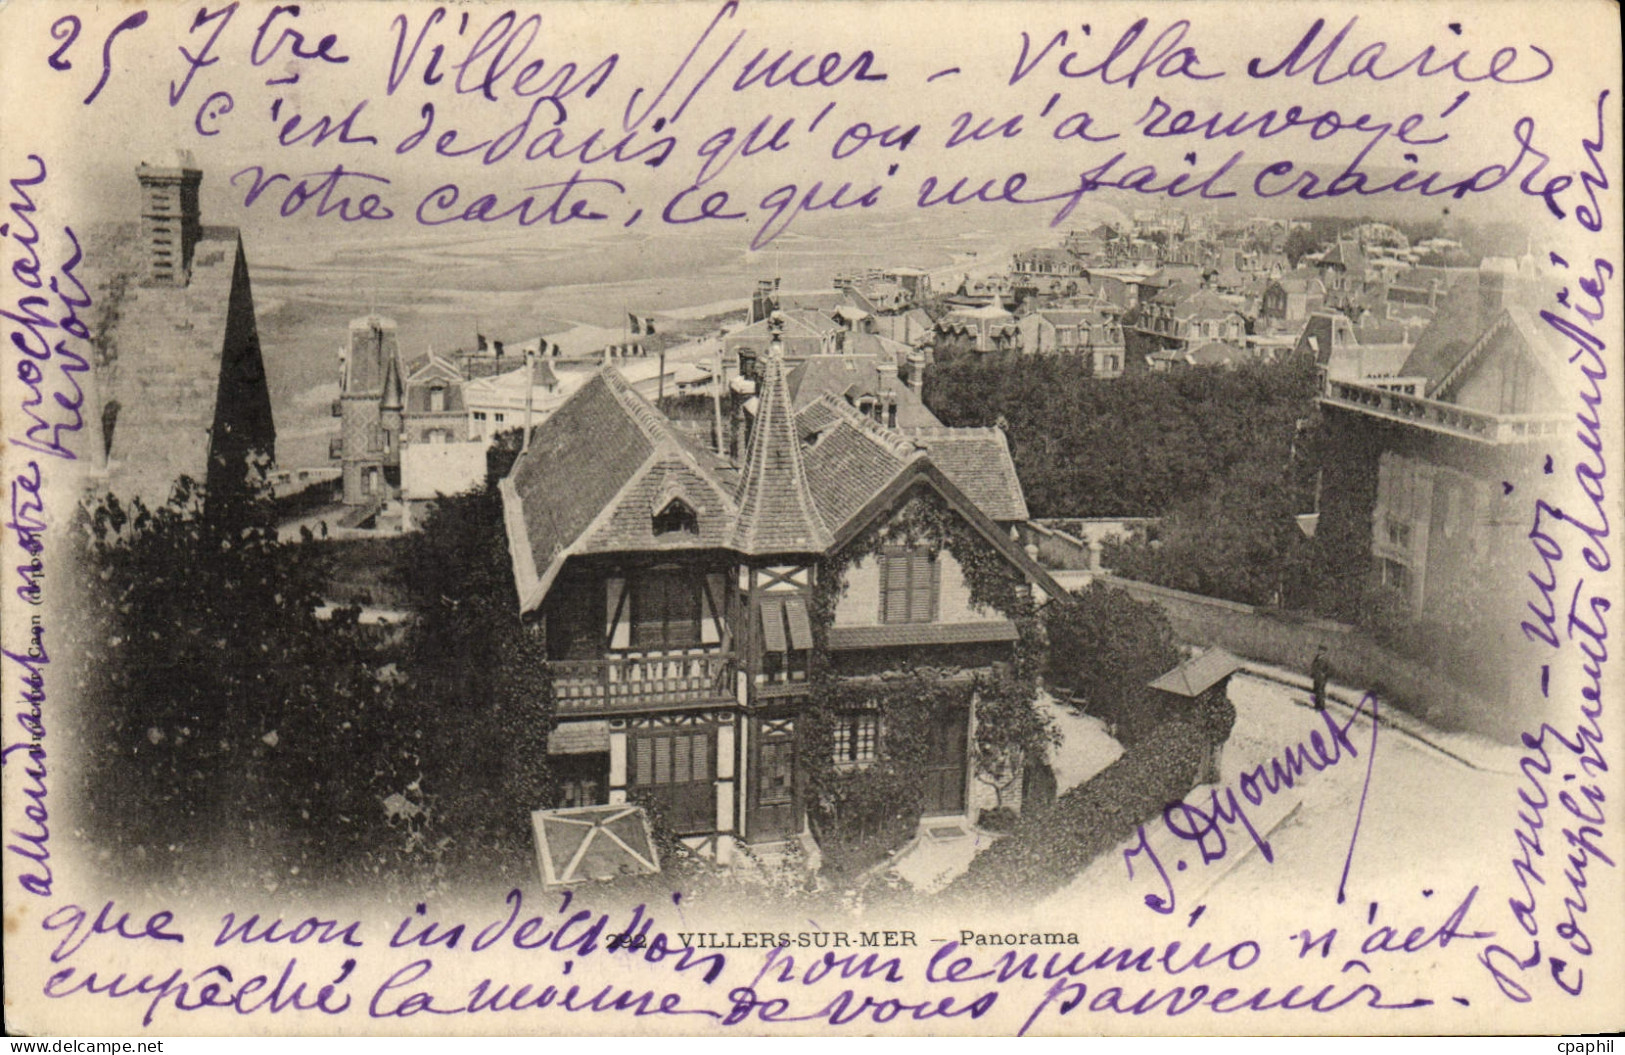 25 7bre Villers s/mer – Villa Marie
C'est de Paris qu'on m'a renvoyé
votre carte, ce qui me fait craindre
que mon indécision pour le numéro n'ait
empêché la mienne de vous parvenir.
Rassurez-moi-
Compliments et amitiés en
attendant notre prochain
Revoir
J. Dyonnet
292 VILLERS-SUR-MER — Panorama
cpaphil